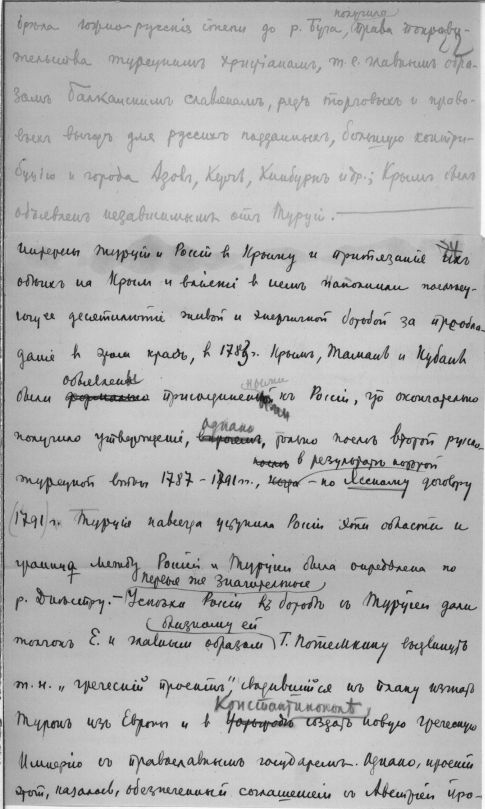 южно-русскія степи до р. Буга, получила права покрови-
тельства турецкимъ христіанамъ, т.е. главнымъ обра-
замъ балканскимъ славянамъ, рядъ торговыхъ и право-
выхъ выгодъ для русскихъ подданныхъ, большую контри-
буцію и города Азовъ, Керчь, Кинбурнъ и др.; Крымъ былъ
объявленъ независимымъ отъ Турціи.
Интересы Турціи и Россіи в Крыму и притязаніе ихъ
обѣихъ на Крымъ и вліяніе в немъ наполнили послѣду-
ющее десятилѣтіе живой и энергичной борьбой за преобла-
даніе в этомъ краѣ, в 1783 г. Крымъ, Тамань и Кубань
были объявлены присоединенными къ Россіи, что окончательно
получило утвержденіе, однако, только послѣ второй русско-
турецкой войны 1787 - 1791 гг., в результатѣ которой - по Ясскому договору
(1791) г. Турція навсегда уступила Россіи эти области и
граница между Россіей и Турціей была опредѣлена по
р. Днѣстру. - Первые же значительные успѣхи Россіи въ борьбѣ съ Турціей дали
толчокъ Е. и главнымъ образомъ близкому ей Г. Потемкину выдвинуть
т.н. "греческій проектъ", сводившійся къ плану изгнать
Турокъ изъ Европы и в Константинополѣ создать новую греческую
Имперію съ православнымъ государемъ. Однако, проектъ
этотъ, казалось, обезпеченный соглашеніемъ съ Австріей про-